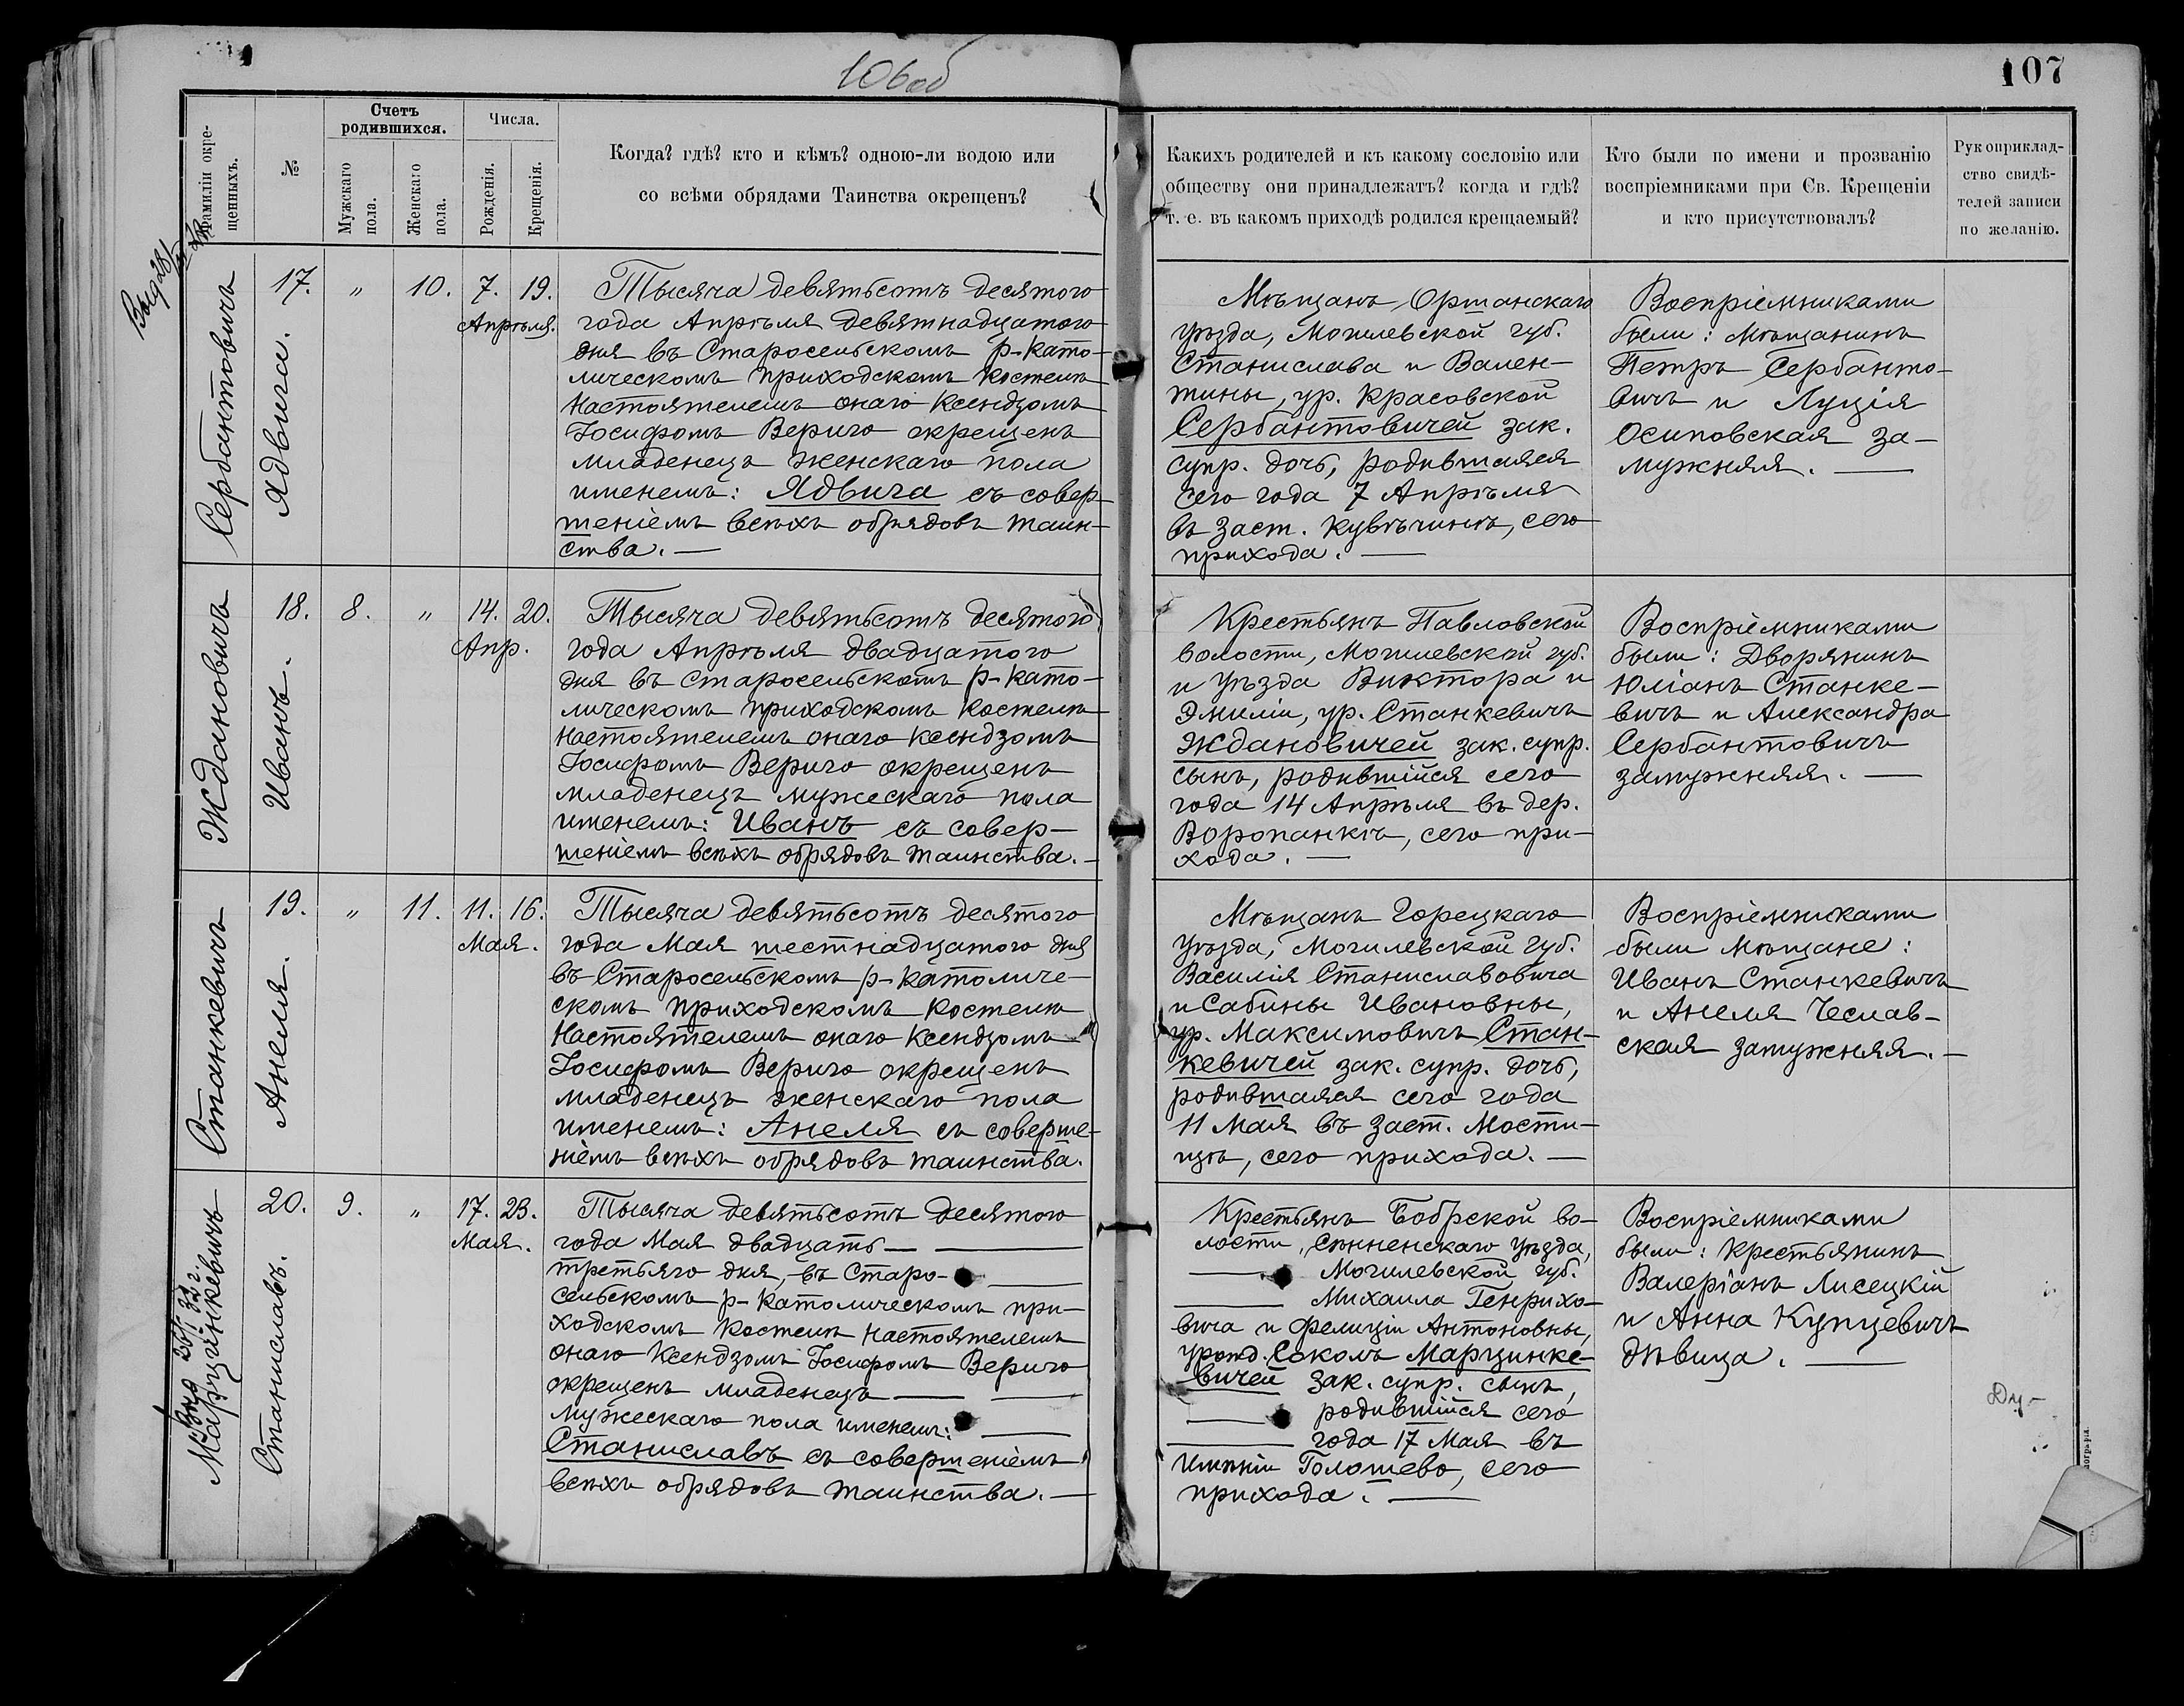 106об
107
Фамиліи окре-
щенныхъ.
№
Счетъ
родившихся.
Мужскаго
пола.
Женскаго
пола.
Числа.
Рожденія.
Крещенія.
Когда? гдѣ? кто и кѣмъ? одною-ли водою или
со всѣми обрядами Таинства окрещенъ?
Какихъ родителей и къ какому сословію или
обществу они принадлежатъ? когда и гдѣ?
т. е. въ какомъ приходѣ родился крещаемый?
Кто были по имени и прозванію
воспріемниками при Св. Крещеніи
и кто присутствовалъ?
Рукоприклад-
ство свидѣ-
телей записи
по желанію.
Сербантовичъ
Ядвига.
17.
"
10.
7.
19.
Апрѣля.
Тысяча девятьсотъ десятого
года Апрѣля девятнадцатого
дня въ Старосельскомъ р-като-
лическомъ приходскомъ костелѣ
Настоятелемъ онаго Ксендзомъ
Іосифомъ Вериго окрещенъ
младенецъ женскаго пола
именемъ: Ядвига съ совер-
шеніемъ всѣхъ обрядовъ таин-
ства. —
Мѣщанъ Оршанскаго
уѣзда, Могилевской губ.
Станислава и Вален-
тины, ур. Красовской
Сербантовичей зак.
супр. дочь, родившаяся
сего года 7 Апрѣля
въ заст. Кувѣчинѣ, сего
прихода. —
Воспріемниками
были: мѣщанинъ
Петръ Сербанто-
вичъ и Луція
Осиповская за-
мужняя. —
Ждановичъ
Иванъ.
18.
8.
"
14.
20.
Апр.
Тысяча девятьсотъ десятого
года Апрѣля двадцатого
дня въ Старосельскомъ р-като-
лическомъ приходскомъ костелѣ
настоятелемъ онаго ксендзомъ
Іосифомъ Вериго окрещенъ
младенецъ мужескаго пола
именемъ: Иванъ съ совер-
шеніемъ всѣхъ обрядовъ таинства. —
Крестьянъ Павловской
волости, Могилевской губ.
и уѣзда Виктора и
Эмиліи, ур. Станкевичъ
Ждановичей зак. супр.
сынъ, родившійся сего
года 14 Апрѣля въ дер.
Воропанкѣ, сего при-
хода. —
Воспріемниками
были: Дворянинъ
Юліанъ Станке-
вичъ и Александра
Сербантовичъ
замужняя. —
Станкевичъ
Анеля.
19.
"
11.
11.
16.
Мая.
Тысяча девятьсотъ десятого
года Мая шестнадцатого дня
въ Старосельскомъ р-католиче-
скомъ приходскомъ костелѣ
Настоятелемъ онаго Ксендзомъ
Іосифомъ Вериго окрещенъ
младенецъ женскаго пола
именемъ: Анеля съ соверше-
ніемъ всѣхъ обрядовъ таинства.
Мѣщанъ Горецкаго
уѣзда, Могилевской губ.
Василія Станиславовича
и Сабины Ивановны,
ур. Максимовичъ Стан-
кевичей зак. супр. дочь,
родившаяся сего года
11 Мая въ заст. Мости-
цѣ, сего прихода. —
Воспріемниками
были мѣщане:
Иванъ Станкевичъ
и Анеля Чеслав-
ская замужняя. —
Марцинкевичъ
Станиславъ.
20.
9.
"
17.
23.
Мая.
Тысяча девятьсотъ десятого
года Мая двадцать —
третьяго дня, въ Старо-
сельскомъ р-католическомъ при-
ходскомъ костелѣ настоятелемъ
онаго Ксендзомъ Іосифомъ Вериго
окрещенъ младенецъ —
мужескаго пола именемъ:
Станиславъ съ совершеніемъ
всѣхъ обрядовъ таинства. —
Крестьянъ Бобрской во-
лости, Сѣнненскаго уѣзда,
Могилевской губ.
Михаила Генрихо-
вича и Фелиціи Антоновны,
урожд. Соколъ Марцинке-
вичей зак. супр. сынъ,
родившійся сего
года 17 Мая въ
имѣніи Голошево, сего
прихода. —
Воспріемниками
были: крестьянинъ
Валеріанъ Лисецкій
и Анна Купцевичъ
дѣвица. —